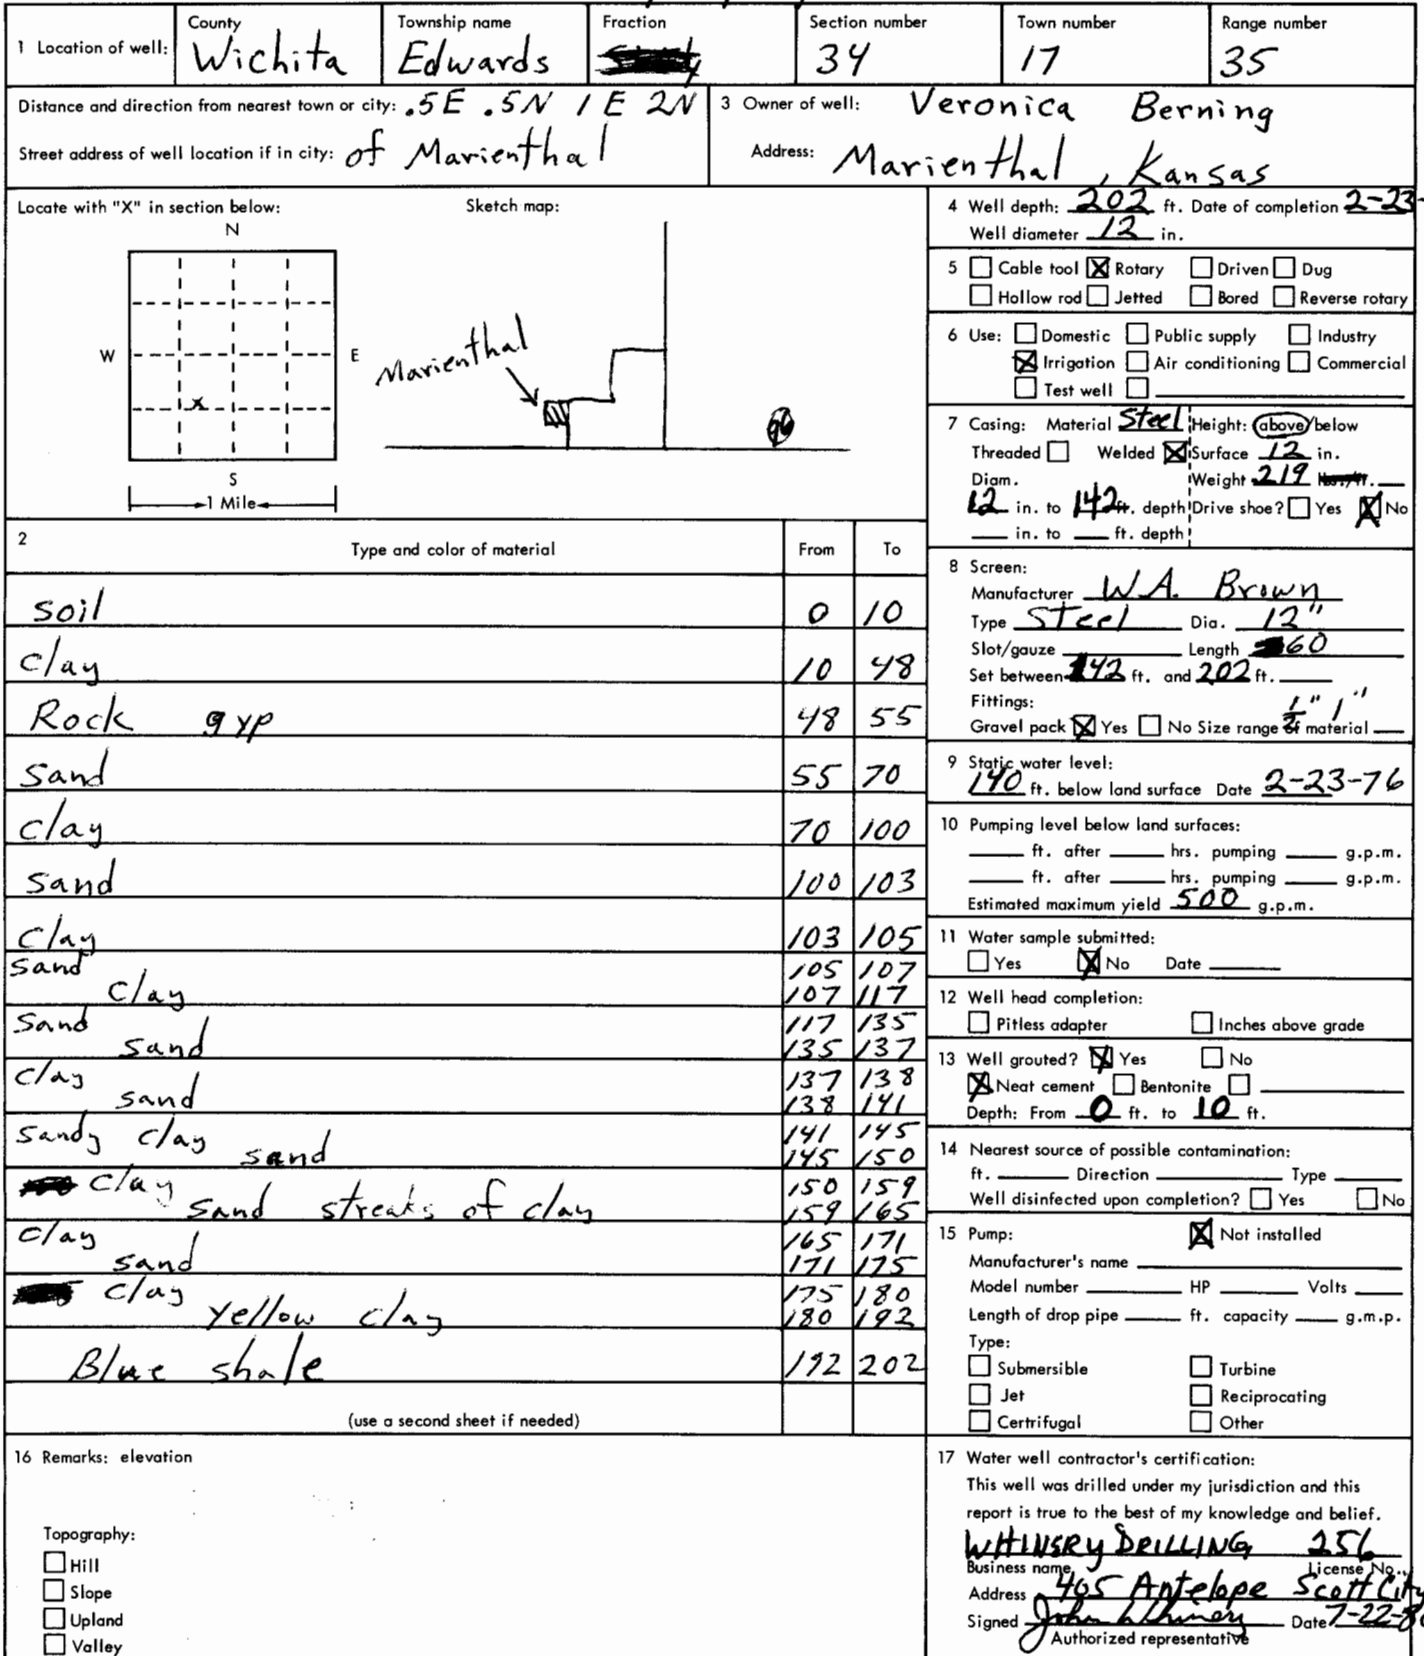 County Township name Fraction Section number Town number Range number
1 Location of well: Wichita Edwards 34 17 35
Distance and direction from nearest town or city: .5E .5N 1E 2N
Street address of well location if in city: of Marienthal
3 Owner of well: Veronica Berning
Address: Marienthal, Kansas
Locate with "X" in section below: Sketch map:
N
W E
X
S
1 Mile
Marienthal
96
2 Type and color of material From To
soil 0 10
clay 10 48
Rock gyp 48 55
sand 55 70
clay 70 100
sand 100 103
clay 103 105
sand 105 107
clay 107 117
sand 117 135
sand 135 137
clay 137 138
sand 138 141
sandy clay 141 145
sand 145 150
clay 150 159
sand streaks of clay 159 165
clay 165 171
sand 171 175
clay 175 180
yellow clay 180 192
Blue shale 192 202
(use a second sheet if needed)
16 Remarks: elevation
Topography:
Hill
Slope
Upland
Valley
4 Well depth: 202 ft. Date of completion 2-23-
Well diameter 12 in.
5 Cable tool X Rotary Driven Dug
Hollow rod Jetted Bored Reverse rotary
6 Use: Domestic Public supply Industry
X Irrigation Air conditioning Commercial
Test well
7 Casing: Material Steel Height: above/below
Threaded Welded X Surface 12 in.
Diam. Weight .219 lbs./ft.
12 in. to 142 ft. depth Drive shoe? Yes X No
in. to ft. depth
8 Screen:
Manufacturer W.A. Brown
Type Steel Dia. 12"
Slot/gauze Length 60
Set between 142 ft. and 202 ft.
Fittings: 1/2" 1"
Gravel pack X Yes No Size range of material
9 Static water level:
140 ft. below land surface Date 2-23-76
10 Pumping level below land surfaces:
ft. after hrs. pumping g.p.m.
ft. after hrs. pumping g.p.m.
Estimated maximum yield 500 g.p.m.
11 Water sample submitted:
Yes X No Date
12 Well head completion:
Pitless adapter Inches above grade
13 Well grouted? X Yes No
X Neat cement Bentonite
Depth: From 0 ft. to 10 ft.
14 Nearest source of possible contamination:
ft. Direction Type
Well disinfected upon completion? Yes No
15 Pump: X Not installed
Manufacturer's name
Model number HP Volts
Length of drop pipe ft. capacity g.m.p.
Type:
Submersible Turbine
Jet Reciprocating
Certrifugal Other
17 Water well contractor's certification:
This well was drilled under my jurisdiction and this
report is true to the best of my knowledge and belief.
WHINSRY DRILLING 256
Business name License No.
Address 405 Antelope Scott City
Signed John Whinsry Date 7-22-8
Authorized representative